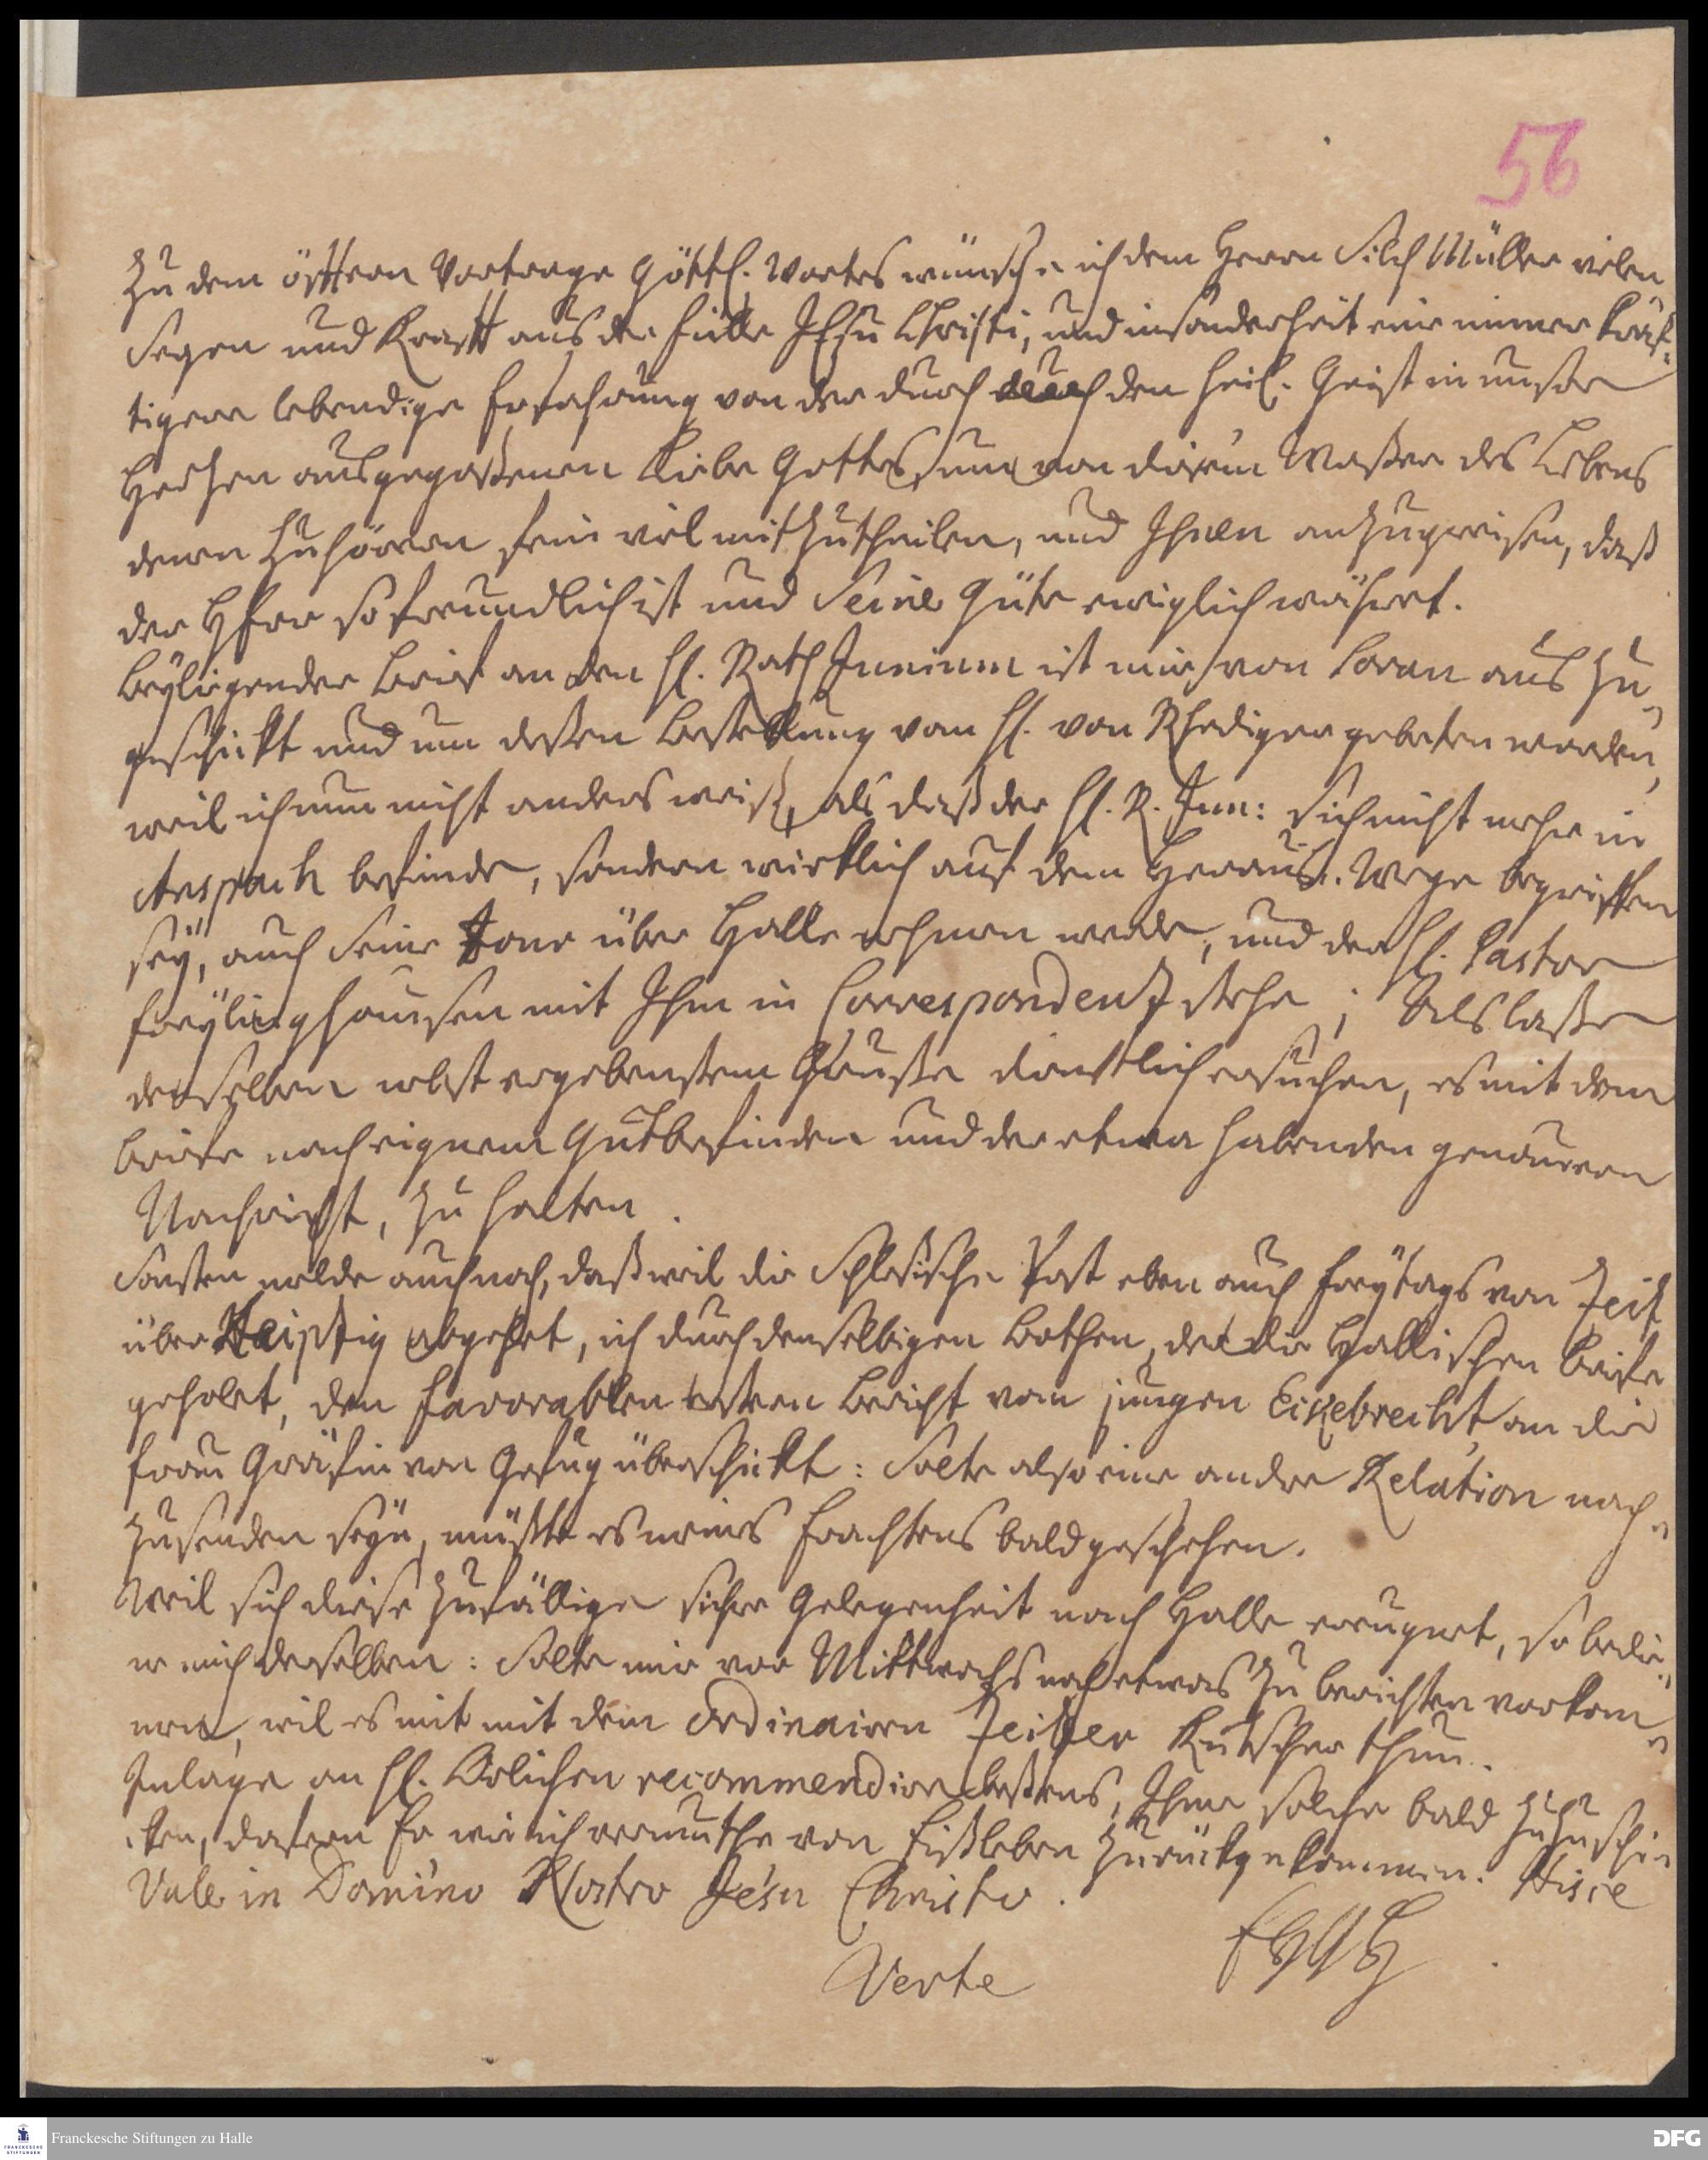 56
Zu dem öfftern Vortrage Göttl. Wortes wünsche ich dem Herrn Silchmüller vielen
Segen und Krafft aus der Fülle JEsu Christi, und insonderheit eine immer kräf-
tigere lebendige Erfahrung von der durch den Heil. Geist in unsre
Hertzen ausgegoßenen Liebe Gottes, um von diesem Waßer des Lebens
denen Zuhörern fein viel mitzutheilen, und Ihnen anzupreisen, daß
der HErr so freundlich ist und Seine Güte ewiglich währet.
Beyliegender Brief an den H. Rath Junium ist mir von Soran aus zu-
geschickt und um deßen Bestellung vom H. von Rhediger gebeten worden,
weil ich nun nicht anders weiß, als daß der H. R. Jun: sich nicht mehr in
Anspach befinde, sondern wirklich auf dem Herauß. Wege begriffen
sey, auch seine Tour über Halle nehmen werde, und der H. Pastor
Freylinghausen mit Ihm in Correspondentz stehe; Als laße
denselben nebst ergebenstem Gruße dienstlich ersuchen, es mit dem
Briefe nach eignem Gutbefinden und der etwa habenden genauern
Nachricht, zu halten.
Sonsten melde auch noch, daß weil die Schlesische Post eben auch Freytags von Zeitz
über Leipzig abgehet, ich durch denselbigen Bothen, der die Hallischen Briefe
geholet, den favorablen ersten Bericht vom jungen Eikebrecht an die
Frau Gräfin von Gefug überschickt: Solte also eine andre Relation nach-
zusenden seyn, müßte es meines Erachtens bald geschehen.
Weil sich diese zufällige sichre Gelegenheit nach Halle ereugnet, so bedie-
ne mich derselben: Solte mir vor Mittwochs noch etwas zu berichten vorkom-
men, wil es mit mit dem ordinairen Zeitzer Kutscher thun.
Inlage an H. recommendire bestens, Ihme solche bald zuzuschi-
cken, dafern Er wie ich vermuthe von Eißleben zurückgekommen. Hisce
Vale in Domino Nostro Jesu Christo.
Verte